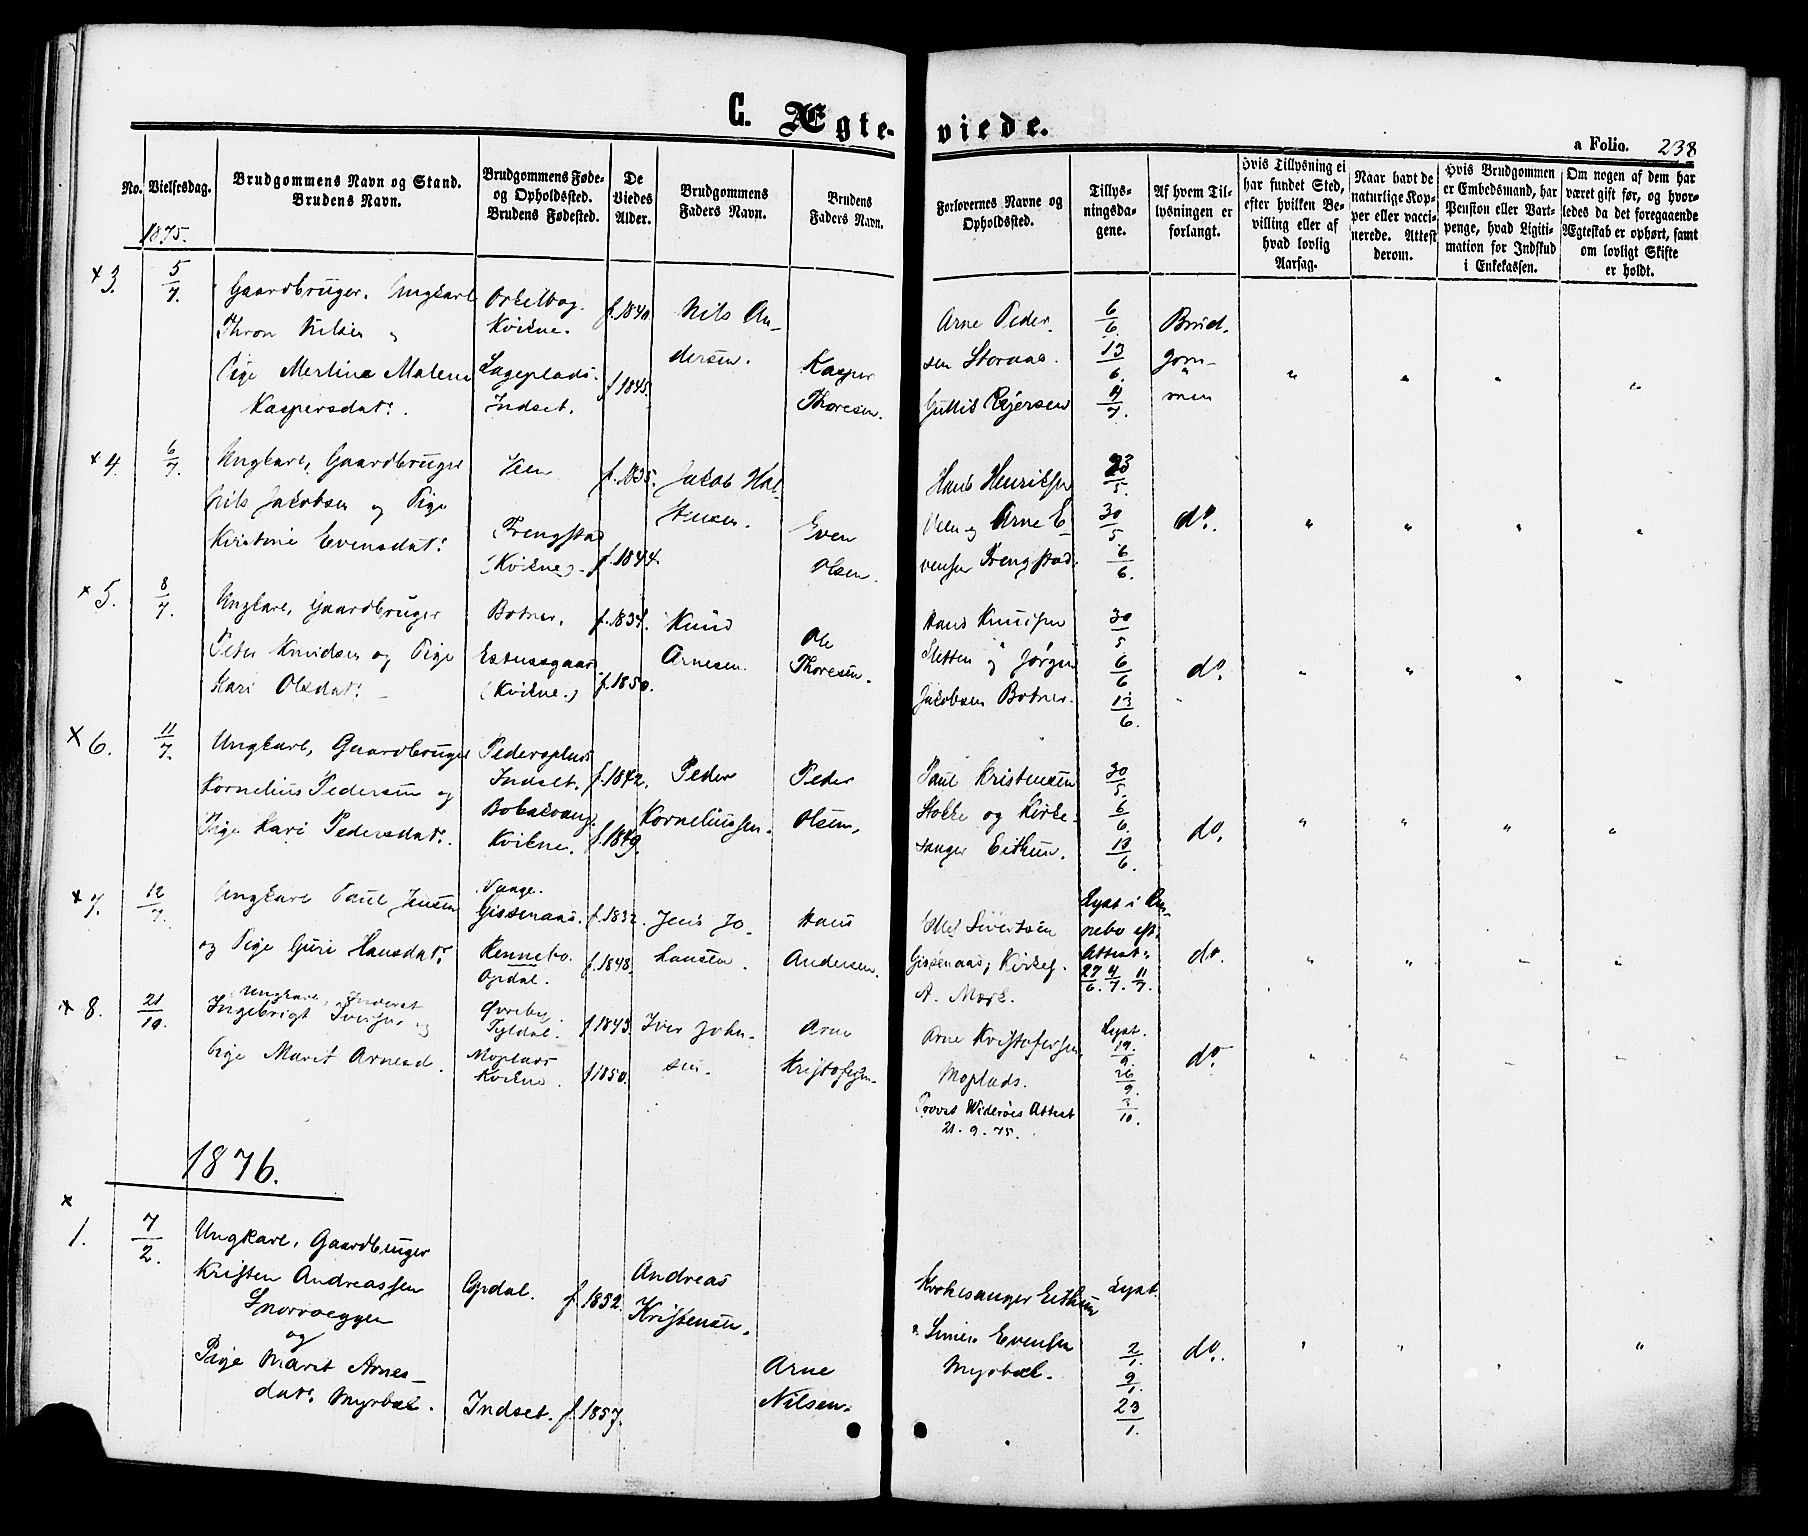 C. Ægte-viede.
a Folio. 238
No. Vielsesdag. Brudgommens Navn og Stand. Brudens Navn. Brudgommens Føde- og Opholdssted. Brudens Fødested. De Viedes Alder. Brudgommens Faders Navn. Brudens Faders Navn. Forlovernes Navne og Opholdssted. Tillysningsdagene. Af hvem Tillysningen er forlangt. Hvis Tillysning ei har fundet Sted, efter hvilken Bevilling eller af hvad lovlig Aarsag. Naar havt de naturlige Kopper eller vaccinerede. Attest derom. Hvis Brudgommen er Embedsmand, har Pension eller Vartpenge, hvad Ligitimation for Indskud i Enkekassen. Om nogen af dem har været gift før, og hvorledes da det foregaaende Ægteskab er ophørt, samt om lovligt Skifte er holdt.
1875.
x 3. 5/7. Gaardbruger, Ungkarl Orkelbog f. 1840. Nils An- Arne Peder- 6/6. Brud-
Thron Nilsen og Kvikne. dersen. sen Storaas. 13/6. gom-
Pige Merlina Malene Lageplads. f. 1845. Kasper " " " "
Kaspersdatr. Indset. Thoresen. Ejersen 4/7 men
x 4. 6/7. Ungkarl, Gaardbruger Veen f. 1835. Jakob Hal- Hans Henriksen 23/5.
Nils Jakobsen og Pige Frengstad stensen. Even Veen og Arne E- 30/5 do. " " " "
Kristine Evensdatr. (Kvikne). f. 1844. Olsen. vensen Frengstad. 6/6.
x 5. 8/7. Ungkarl, Gaardbruger Botner. f. 1834. Knud Ole Hans Knudsen 30/5
Peter Knudsen og Pige Estensgaard Arnesen. Thoresen. Sletten og Jørgen 6/6 do. " " " "
Kari Olsdatr. (Kvikne.) f. 1850. Jakobsen Botner. 13/6.
x 6. 11/7. Ungkarl, Gaardbruger Pedersplads Indset. f. 1842. Peder Peder Paul Kristensen 30/5.
Kornelius Pedersen og Bobakvang. Korneliussen. Olsen, Stokke og Kirke- 6/6. do. " " " "
Pige Kari Pedersdatr. Kvikne. f. 1849. sanger Eithun. 13/6.
x 7. 12/7. Ungkarl Paul Jensen Vaage. Gissenaas. f. 1832. Jens Jo- Hans Sivertsen Lyst i Ren-
og Pige Guri Hansdatr. Rennebo. Opdal. f. 1848. hansen. Andersen. Gissenaas, Kirkes. nebo eft. Attest. do. " " " "
A. Mork. 27/6. 4/7. 11/7.
x 8. 21/10. Ungkarl, Inderst Ingebrigt Iversen og Øvreby. Tyldal. f 1843. Iver John- Arne Arne Kristofersen Lyst. 19/9. do. " " - "
Pige Marit Arnesd. Moplads Kvikne. f 1850. sen. Kristofersen. Moplads. 26/9.
Provst Widerøes Attest 3/10.
21. 9. 75.
1876.
x
1. 7/2. Ungkarl, Gaardbruger
Kristen Andreassen Opdal. f 1852. Andreas Kirkesanger Eithun Lyst.
Snorroeggen Kristensen.
og Evensen 2/1. do. " " " "
Pige Marit Arnes- Arne Myrbæk. 9/1.
datr. Myrbæk. Indset. f 1857. Nilsen. 23/1.